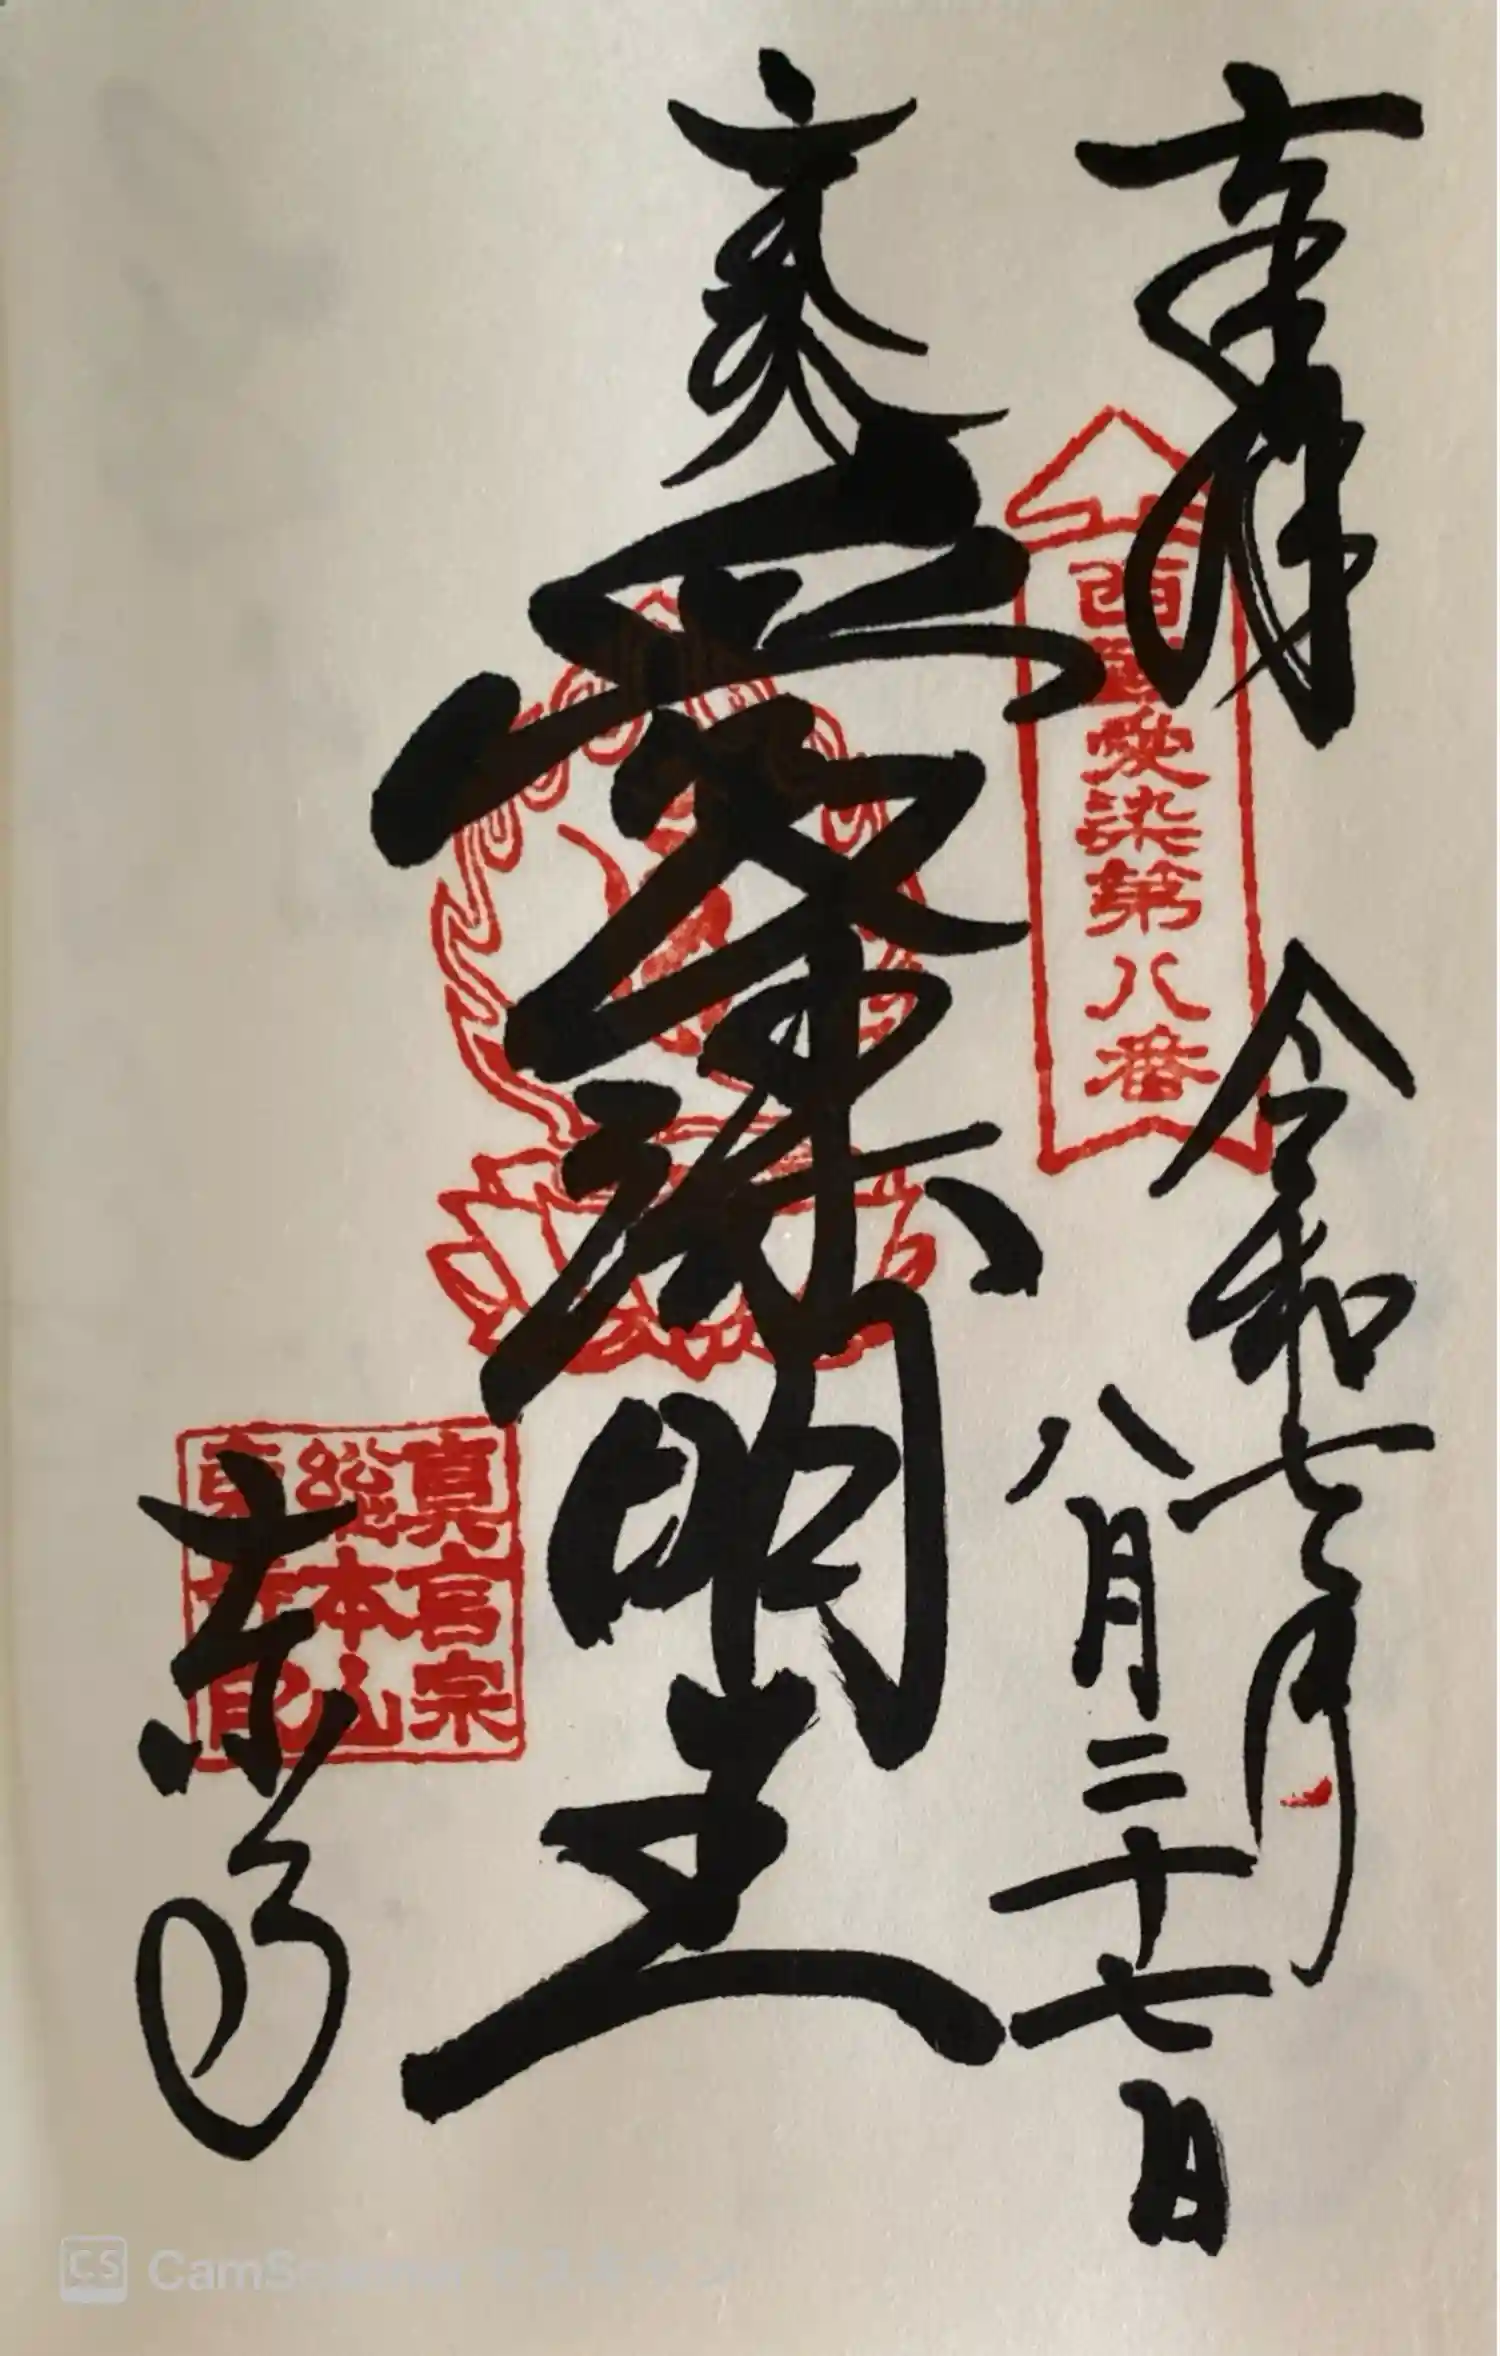 奉拝
西国愛染第八番
令和七年
八月二十七日
愛染明王
真言宗
総本山
東寺印
東寺
CS CamSc